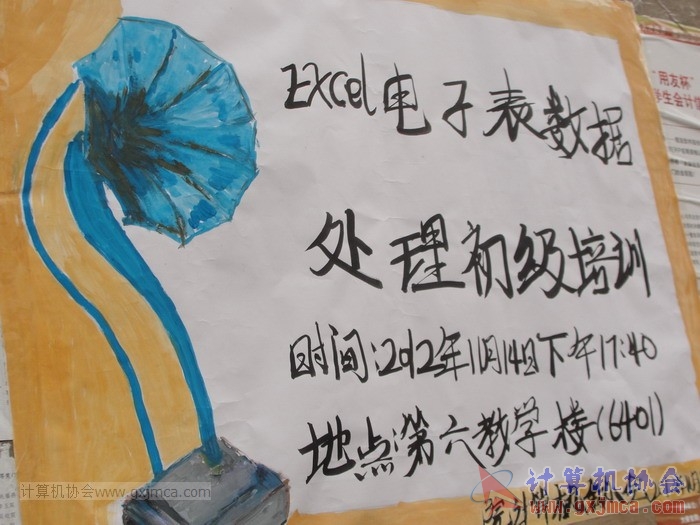 计算机协会
www.gxjmca.com
"用友杯"
Excel电子表数据
处理初级培训
时间:2012年11月14日下午17:40
地点:第六教学楼(6401)
计算机协会www.gxjmca.com
计算机协会
www.gxjmca.com